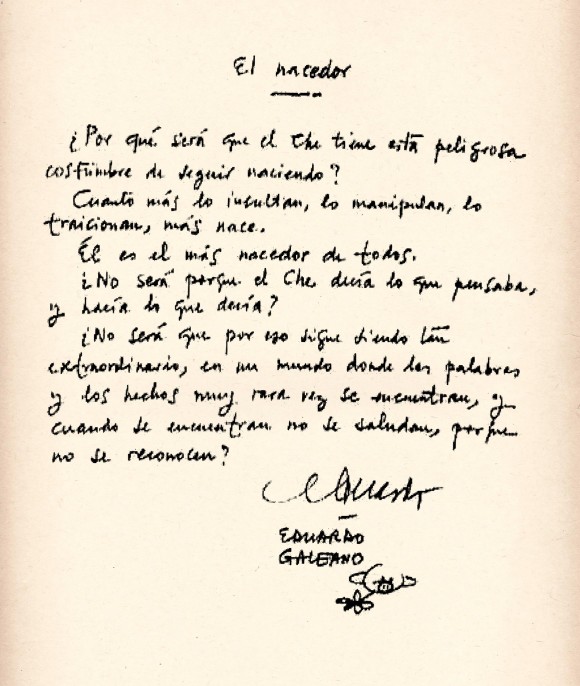 El nacedor
¿Por qué será que el Che tiene esta peligrosa
costumbre de seguir naciendo?
Cuanto más lo insultan, lo manipulan, lo
traicionan, más nace.
Él es el más nacedor de todos.
¿No será porque el Che decía lo que pensaba,
y hacía lo que decía?
¿No será que por eso sigue siendo tan
extraordinario, en un mundo donde las palabras
y los hechos muy rara vez se encuentran, y
cuando se encuentran no se saludan, porque
no se reconocen?
Eduardo
EDUARDO
GALEANO